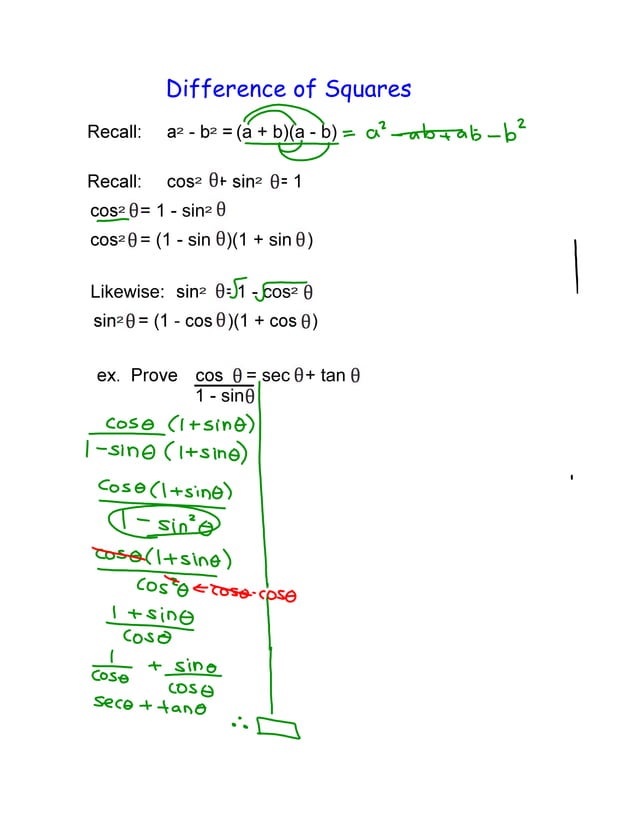 Difference of Squares
Recall: a² - b² = (a + b)(a - b) = a² - ab + ab - b²
Recall: cos² θ + sin² θ = 1
cos² θ = 1 - sin² θ
cos² θ = (1 - sin θ)(1 + sin θ)
Likewise: sin² θ = 1 - cos² θ
sin² θ = (1 - cos θ)(1 + cos θ)
ex. Prove cos θ = sec θ + tan θ
1 - sin θ
cosθ (1+sinθ)
1-sinθ (1+sinθ)
cosθ(1+sinθ)
1 - sin²θ
cosθ(1+sinθ)
cos²θ ← cosθ · cosθ
1 + sinθ
cosθ
1 + sinθ
cosθ cosθ
secθ + tanθ
∴